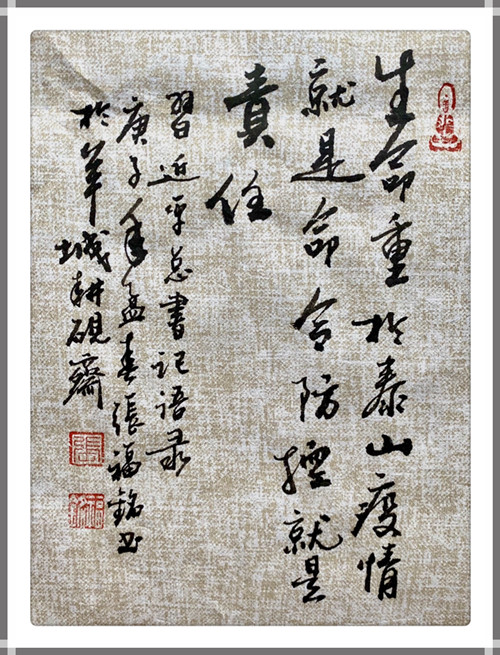 生命重於泰山疫情
就是命令防控就是
責任
習近平总書记语录
庚子年孟春張福銘书
於羊城耕硯齋